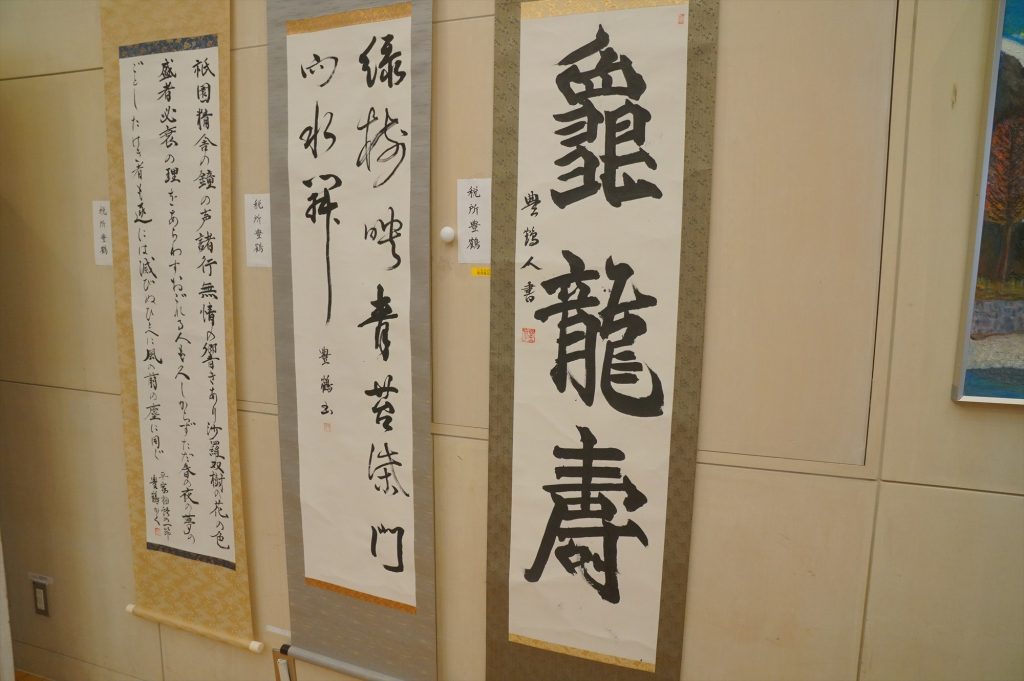 龜龍壽
豊鶴人書
税所豊鶴
緑樹映青苔柴門
向水開
豊鶴書
税所豊鶴
祇園精舎の鐘の声諸行無情の響きあり沙羅双樹の花の色
盛者必衰の理をあらわすおごれる人も久しからずただ春の夜の夢の
ごとしたけき者も遂には滅びぬひとへに風の前の塵に同じ
平家物語の一節
豊鶴かく
税所豊鶴